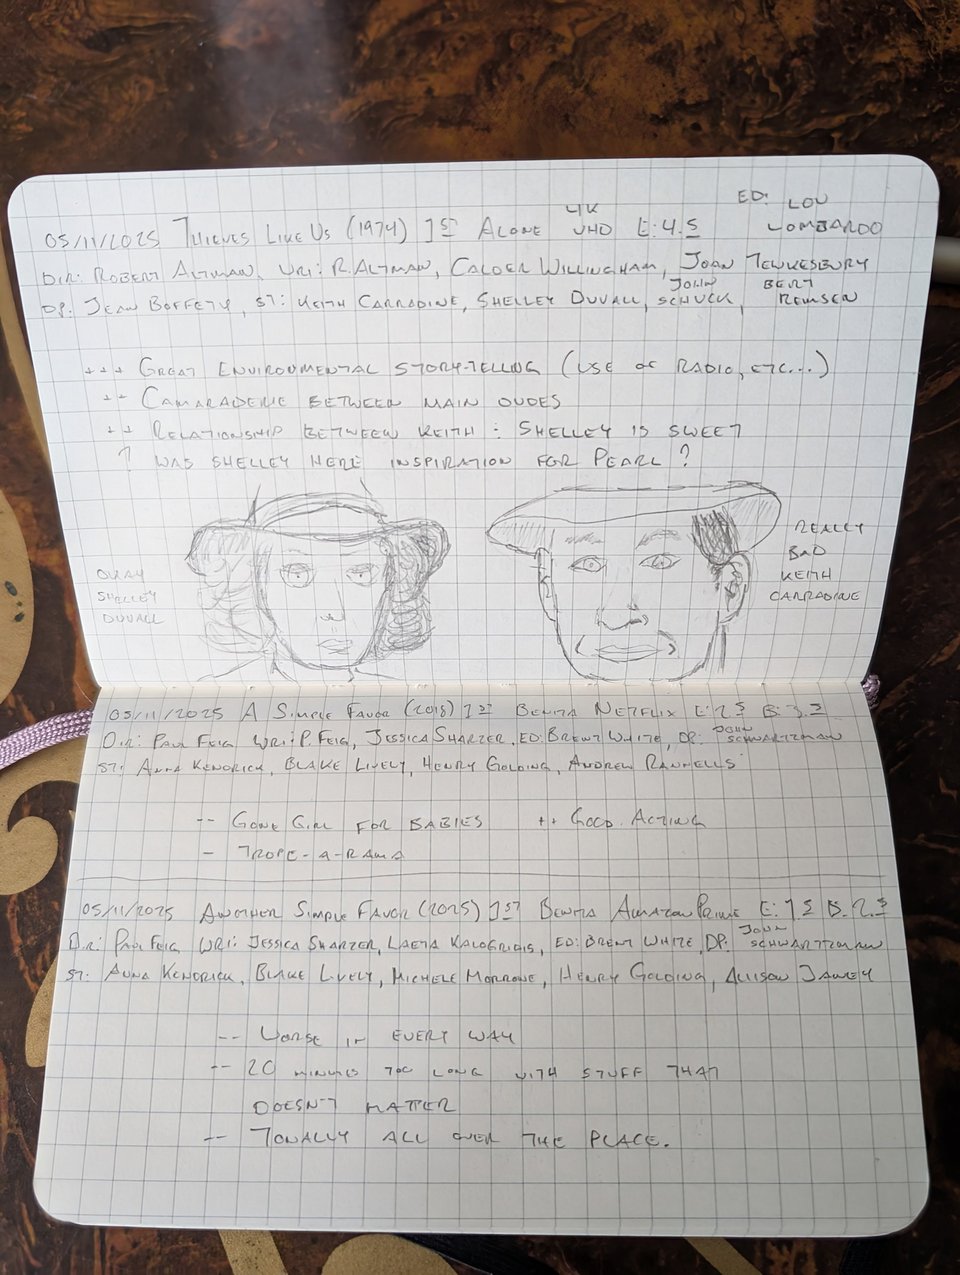 ED: LOU
LOMBARDO
05/11/2025 THIEVES LIKE US (1974) 1ST ALONE 4K UHD E: 4.5
DIR: ROBERT ALTMAN, WRI: R. ALTMAN, CALDER WILLINGHAM, JOAN TEWKESBURY
DP: JEAN BOFFETY, ST: KEITH CARRADINE, SHELLEY DUVALL, JOHN SCHUCK, BERT REMSEN
+++ GREAT ENVIRONMENTAL STORY-TELLING (USE OF RADIO, ETC...)
++ CAMARADERIE BETWEEN MAIN DUDES
++ RELATIONSHIP BETWEEN KEITH : SHELLEY IS SWEET
? WAS SHELLEY HERE INSPIRATION FOR PEARL?
OKAY
SHELLEY
DUVALL
REALLY
BAD
KEITH
CARRADINE
05/11/2025 A SIMPLE FAVOR (2018) 1ST BENITA NETFLIX E: 2.5 B: 3.5
DIR: PAUL FEIG WRI: P. FEIG, JESSICA SHARZER, ED: BRENT WHITE, DP: JOHN SCHWARTZMAN
ST: ANNA KENDRICK, BLAKE LIVELY, HENRY GOLDING, ANDREW RANNELLS
-- GONE GIRL FOR BABIES ++ GOOD ACTING
- TROPE-A-RAMA
05/11/2025 ANOTHER SIMPLE FAVOR (2025) 1ST BENITA AMAZON PRIME E: 1.5 B: 2.5
DIR: PAUL FEIG, WRI: JESSICA SHARZER, LAETA KALOGRIDIS, ED: BRENT WHITE, DP: JOHN SCHWARTZMAN
ST: ANNA KENDRICK, BLAKE LIVELY, MICHELE MORRONE, HENRY GOLDING, ALLISON JANNEY
-- WORSE IN EVERY WAY
-- 20 MINUTES TOO LONG WITH STUFF THAT
DOESN'T MATTER
-- TONALLY ALL OVER THE PLACE.